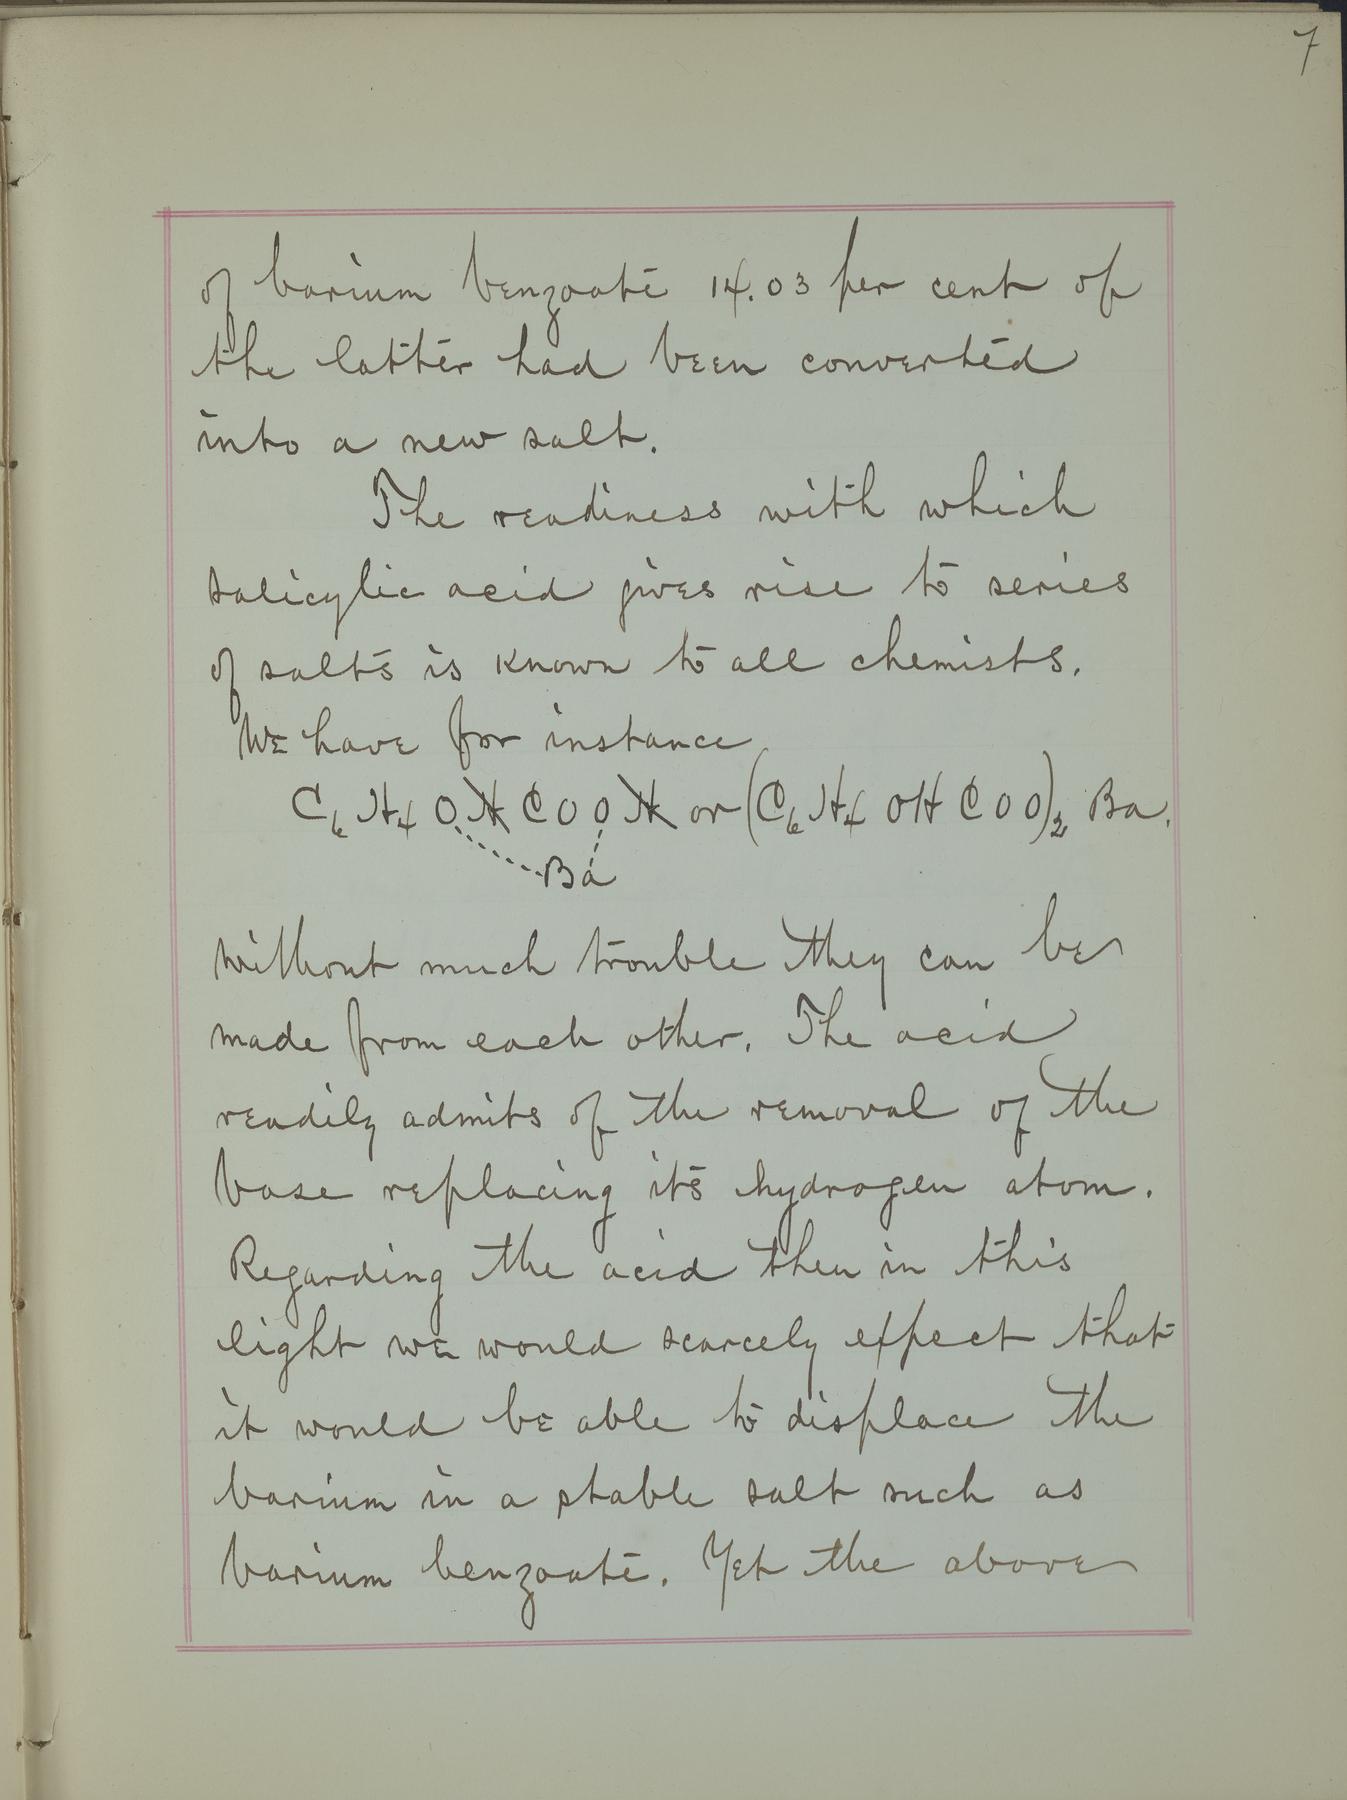 7
of barium benzoate 14.03 per cent of
the latter had been converted
into a new salt.
The readiness with which
salicylic acid gives rise to series
of salts is known to all chemists.
We have for instance
C6 H4 OH COOH or (C6 H4 OH COO)2 Ba.
Ba
without much trouble they can be
made from each other. The acid
readily admits of the removal of the
base replacing its hydrogen atom.
Regarding the acid then in this
light we would scarcely expect that
it would be able to displace the
barium in a stable salt such as
barium benzoate. Yet the above